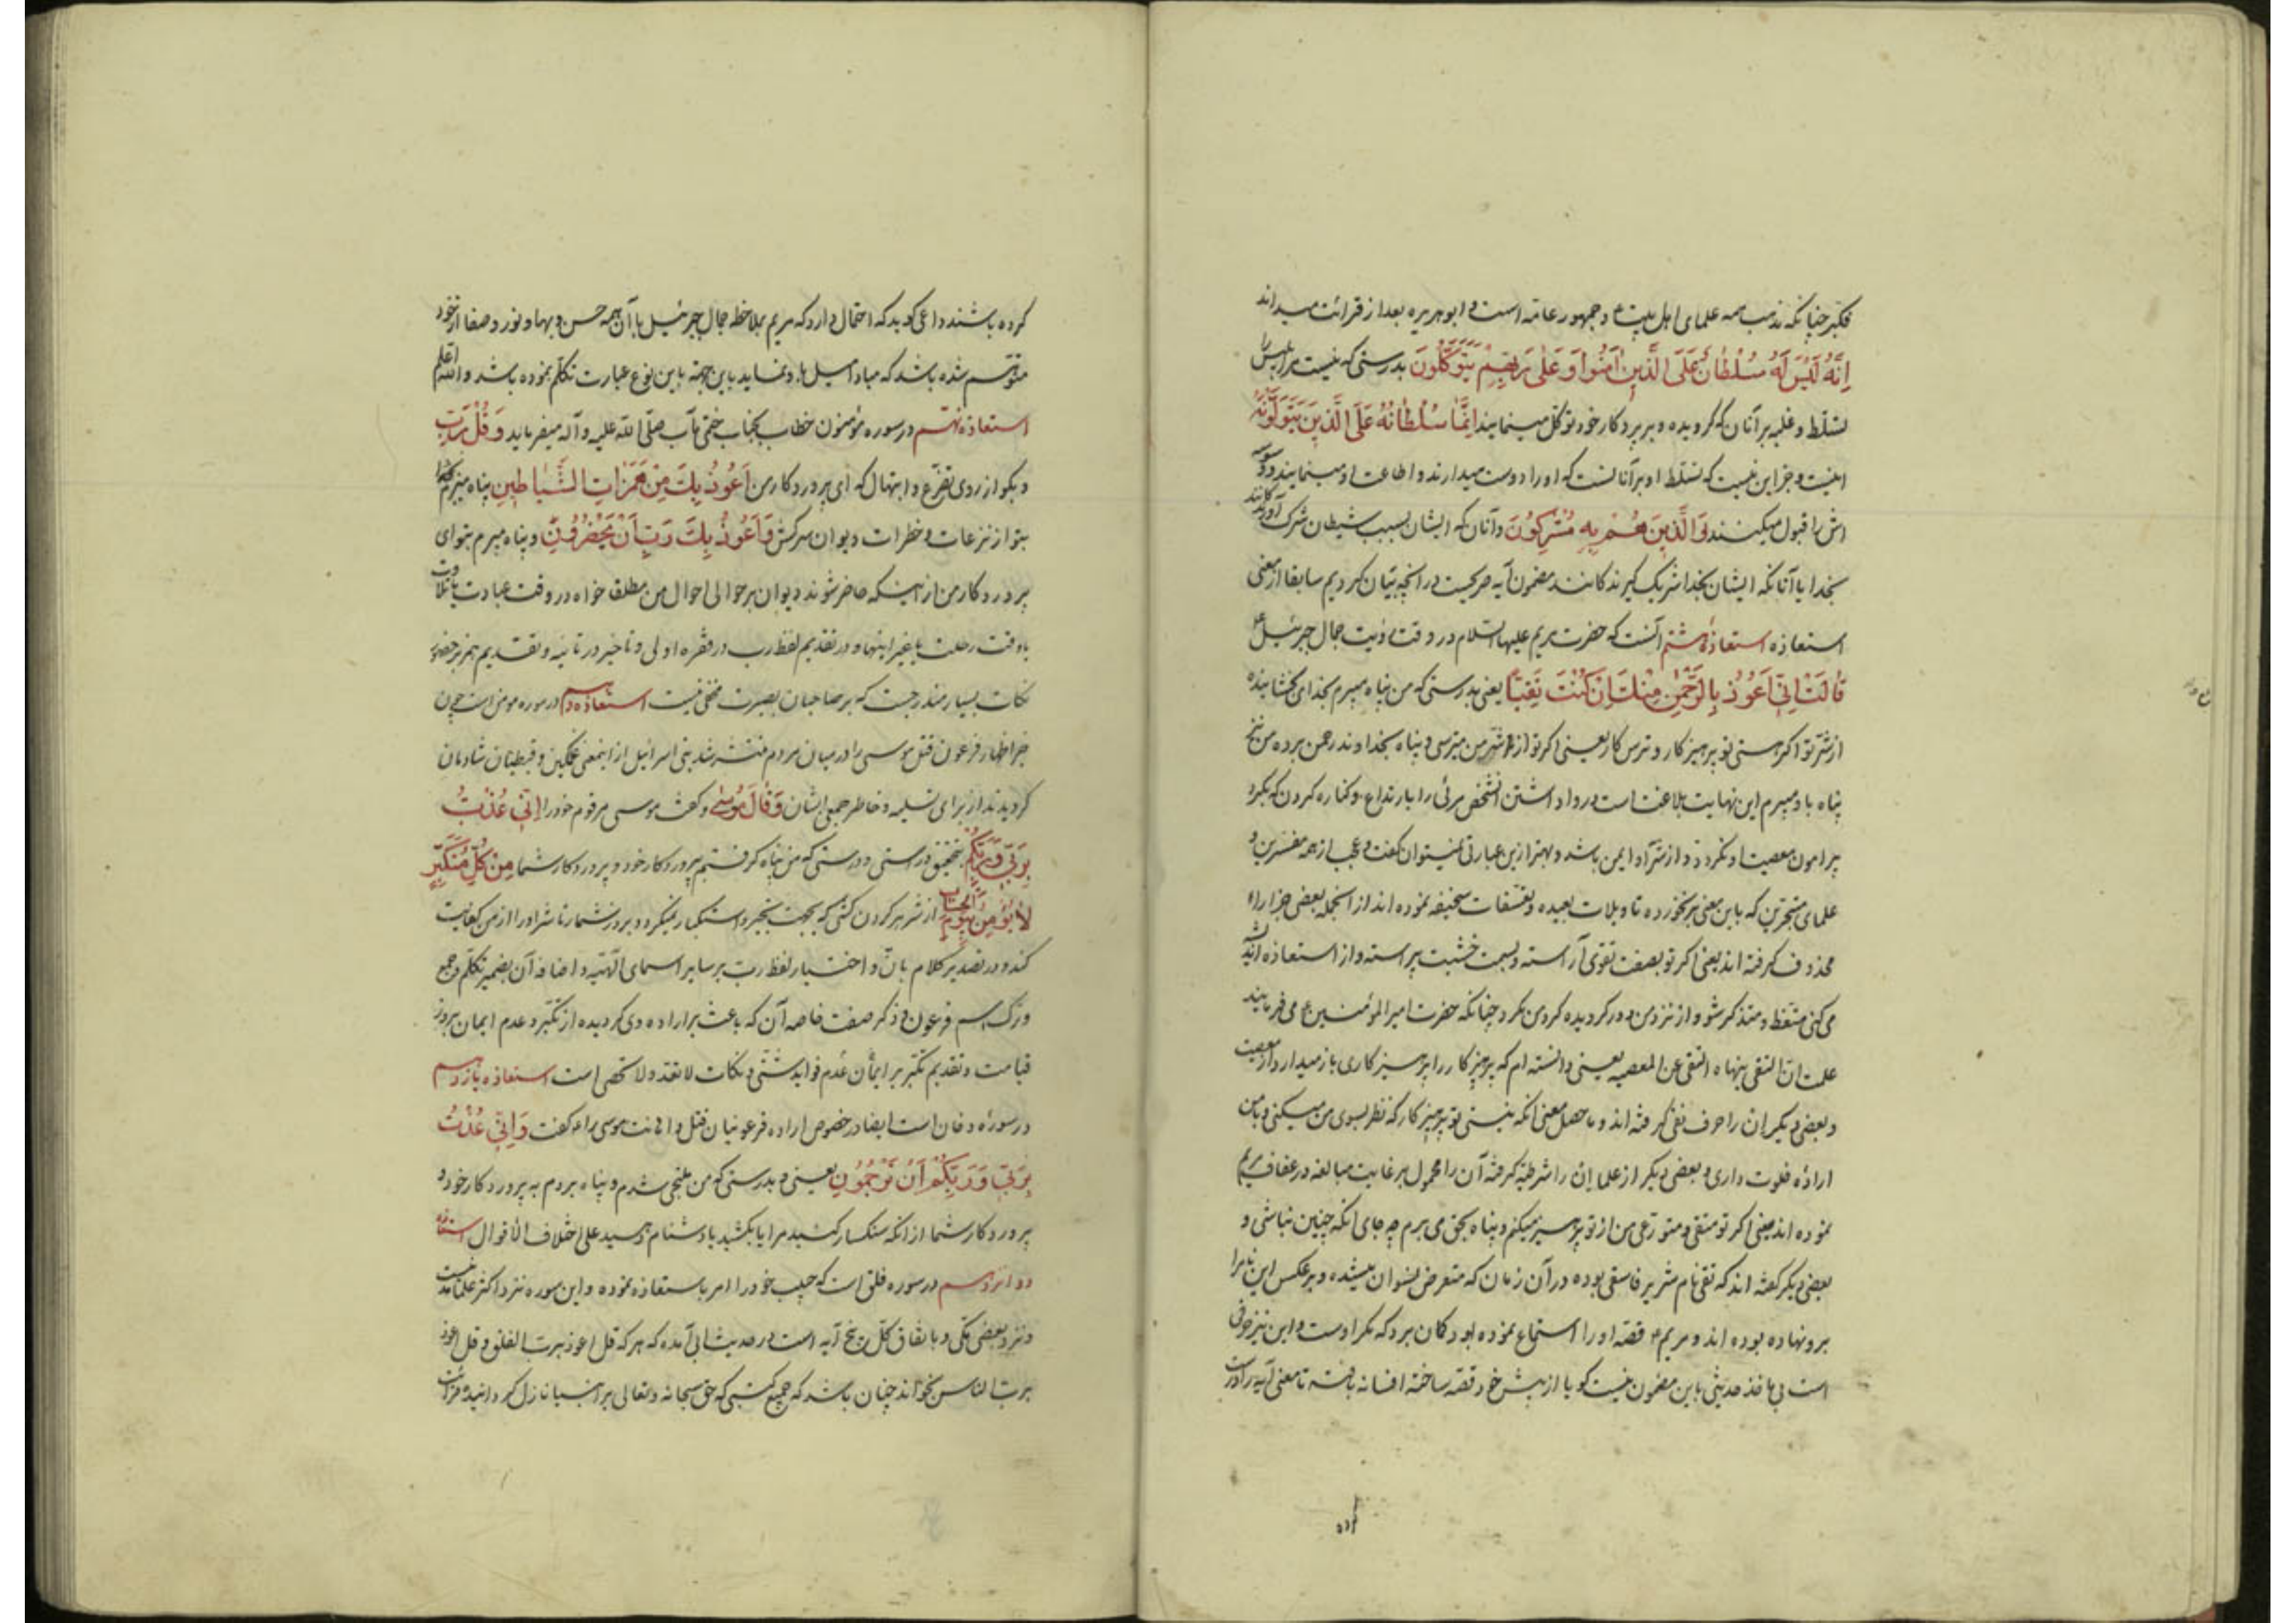 فکبر چنانکه مذهب همه علمای اهل بیت و جمهور عامه است و ابو هریره بعد از قرائت میداند
اِنَّهُ لَیْسَ لَهُ سُلْطانٌ عَلَی الَّذینَ اٰمَنُوا وَ عَلیٰ رَبِّهِمْ یَتَوَکَّلُونَ بدرستی که نیست مر ابلیس را
تسلط و غلبه بر آنان که گرویده و بر پروردکار خود توکل مینمایند اِنَّمَا سُلْطانُهُ عَلَی الَّذینَ یَتَوَلَّوْنَهُ
اینست و جز این نیست که تسلط او بر آنانست که او را دوست میدارند و اطاعت او مینمایند و وسوسه
اش را قبول میکنند وَ الَّذینَ هُمْ بِهِ مُشْرِکُونَ و آنان که ایشان بسبب شیطان شرک آورندکانند
بخدا یا آنانکه ایشان بخدا شریک گیرندکانند مضمون آیه صریحست در آنچه بیان کردیم سابقا از معنی
استعاذه استعاذهٔ هشتم آنست که حضرت مریم علیها السلام در وقت رؤیت جمال جبرئیل
قالَتْ اِنّی اَعُوذُ بِالرَّحْمٰنِ مِنْکَ اِنْ کُنْتَ تَقِیّاً یعنی بدرستی که من پناه میبرم بخدای بخشاینده
از شر تو اکر هستی تو پرهیز کار و ترس کار یعنی اکر تو از شر من میترسی و پناه بخداوند رحمن برده من نیز
پناه باو میبرم این نهایت بلاغت است در واداشتن آنشخص مرئی را بارتداع و کناره کردن که نکرد
پیرامون معصیت او نکردد و از شر او ایمن باشد و بهتر ازین عبارتی نمیتوان گفت و عجب از همه مفسرین و
علمای متبحرین که باین معنی بر نخورده تاویلات بعیده و تعسفات سخیفه نموده اند از آنجمله بعضی جزا را
محذوف گرفته اند یعنی اکر تو بصفت تقوی آراسته و بسمت خشیت پیراسته و از استعاذه اندیشه
می کنی متعظ و متذکر شو و از نزد من دور کردیده کرد من مکرد چنانکه حضرت امیر المؤمنین ع می فرمایند
علمت ان التقی ینهاه التقی عن المعصیه یعنی دانسته ام که پرهیز کار را پرهیز کاری باز میدارد از معصیت
و بعضی دیکر ان را حرف نفی گرفته اند و ما حصل معنی آنکه نیستی تو پرهیز کار که نظر بسوی من میکنی و با من
ارادهٔ خلوت داری و بعضی دیکر از علما ان را شرطیه گرفته آن را محمول بر غایت مبالغه در عفاف مریم
نموده اند یعنی اکر تو متقی و متورعی من از تو پرهیز میکنم و پناه بحق می برم چه جای آنکه چنین نباشی و
بعضی دیکر گفته اند که تقی نام شریر فاسقی بوده در آن زمان که متعرض نسوان میشده و بر عکس این نام را
برو نهاده بوده اند و مریم قصه او را استماع نموده بود کمان برد که مکر اوست و این نیز
است بی ماخذ حدیثی باین مضمون نیست کویا از پیش خود قصه ساخته افسانه بافته تا معنی آیه را
کرده باشند داعی گوید که احتمال دارد که مریم بملاحظه جمال جبرئیل با آن همه حسن و بها و نور و صفا از خود
متوهم شده باشد که مبادا میل باو نماید باین جهة باین نوع عبارت تکلم نموده باشد و الله اعلم
استعاذه نهم در سوره مؤمنون خطاب بجناب ختمی مآب صلی الله علیه و آله میفرماید وَ قُلْ رَبِّ
و بکو از روی تضرع و ابتهال که ای پروردکار من اَعُوذُ بِکَ مِنْ هَمَزاتِ الشَّیاطینِ پناه میبرم
بتو از نزعات و خطرات دیوان سرکش وَ اَعُوذُ بِکَ رَبِّ اَنْ یَحْضُرُونِ و پناه میبرم بتو ای
پروردکار من از اینکه حاضر شوند دیوان بر حوالی احوال من مطلقا خواه در وقت عبادت یا تلاوت
یا وقت رحلت یا غیر اینها و در تقدیم لفظ رب در فقره اولی و تاخیر در ثانیه و تقدیم همز بر حضور
نکات بسیار مندرجست که بر صاحبان بصیرت مخفی نیست استعاذه دهم در سوره مومن است چون
خبر اظهار فرعون قتل موسی را در میان مردم منتشر شد بنی اسرائیل از اینمعنی غمکین و قبطیان شادمان
کردیدند از برای تسلیه و خاطر جمعی ایشان وَ قالَ مُوسیٰ و گفت موسی مر قوم خود را اِنّی عُذْتُ
بِرَبّی وَ رَبِّکُمْ بتحقیق و راستی و درستی که من پناه گرفتم بپروردکار خود و پروردکار شما مِنْ کُلِّ مُتَکَبِّرٍ
لا یُؤْمِنُ بِیَوْمِ الْحِسابِ از شر هر کردن کشی که بجهت تجبر و استکبار نمیکرود بروز شمار تا شر او را از من کفایت
کند و در تصدیر کلام بانّ و اختیار لفظ رب بر سایر اسمای الهیه و اضافه آن بضمیر تکلم و جمع
و ترک اسم فرعون و ذکر صفت خاصه آن که باعث بر اراده وی کردیده از تکبر و عدم ایمان بروز
قیامت و تقدیم تکبر بر ایمان عدم فواید شتی و نکات لا تعد و لا تحصی است استعاذه یازدهم
در سوره دخان است ایضا در خصوص اراده فرعونیان قتل و اهانت موسی را که گفت وَ اِنّی عُذْتُ
بِرَبّی وَ رَبِّکُمْ اَنْ تَرْجُمُونِ یعنی و بدرستی که من ملتجی شدم و پناه بردم به پروردکار خود و
پروردکار شما از آنکه سنکسار کنید مرا یا بکشید یا دشنام دهید علی اختلاف الاقوال استعاذه
دوازدهم در سوره فلق است که حبیب خود را امر باستعاذه نموده و این سوره نزد اکثر علما مدنیست
و نزد بعضی مکی و باتفاق کل پنج آیه است در حدیث ابی آمده که هر که قل اعوذ برب الفلق و قل اعوذ
برب الناس بخواند چنان باشد که جمیع کتبی که حق سبحانه و تعالی بر انبیا نازل کردانیده قرائت